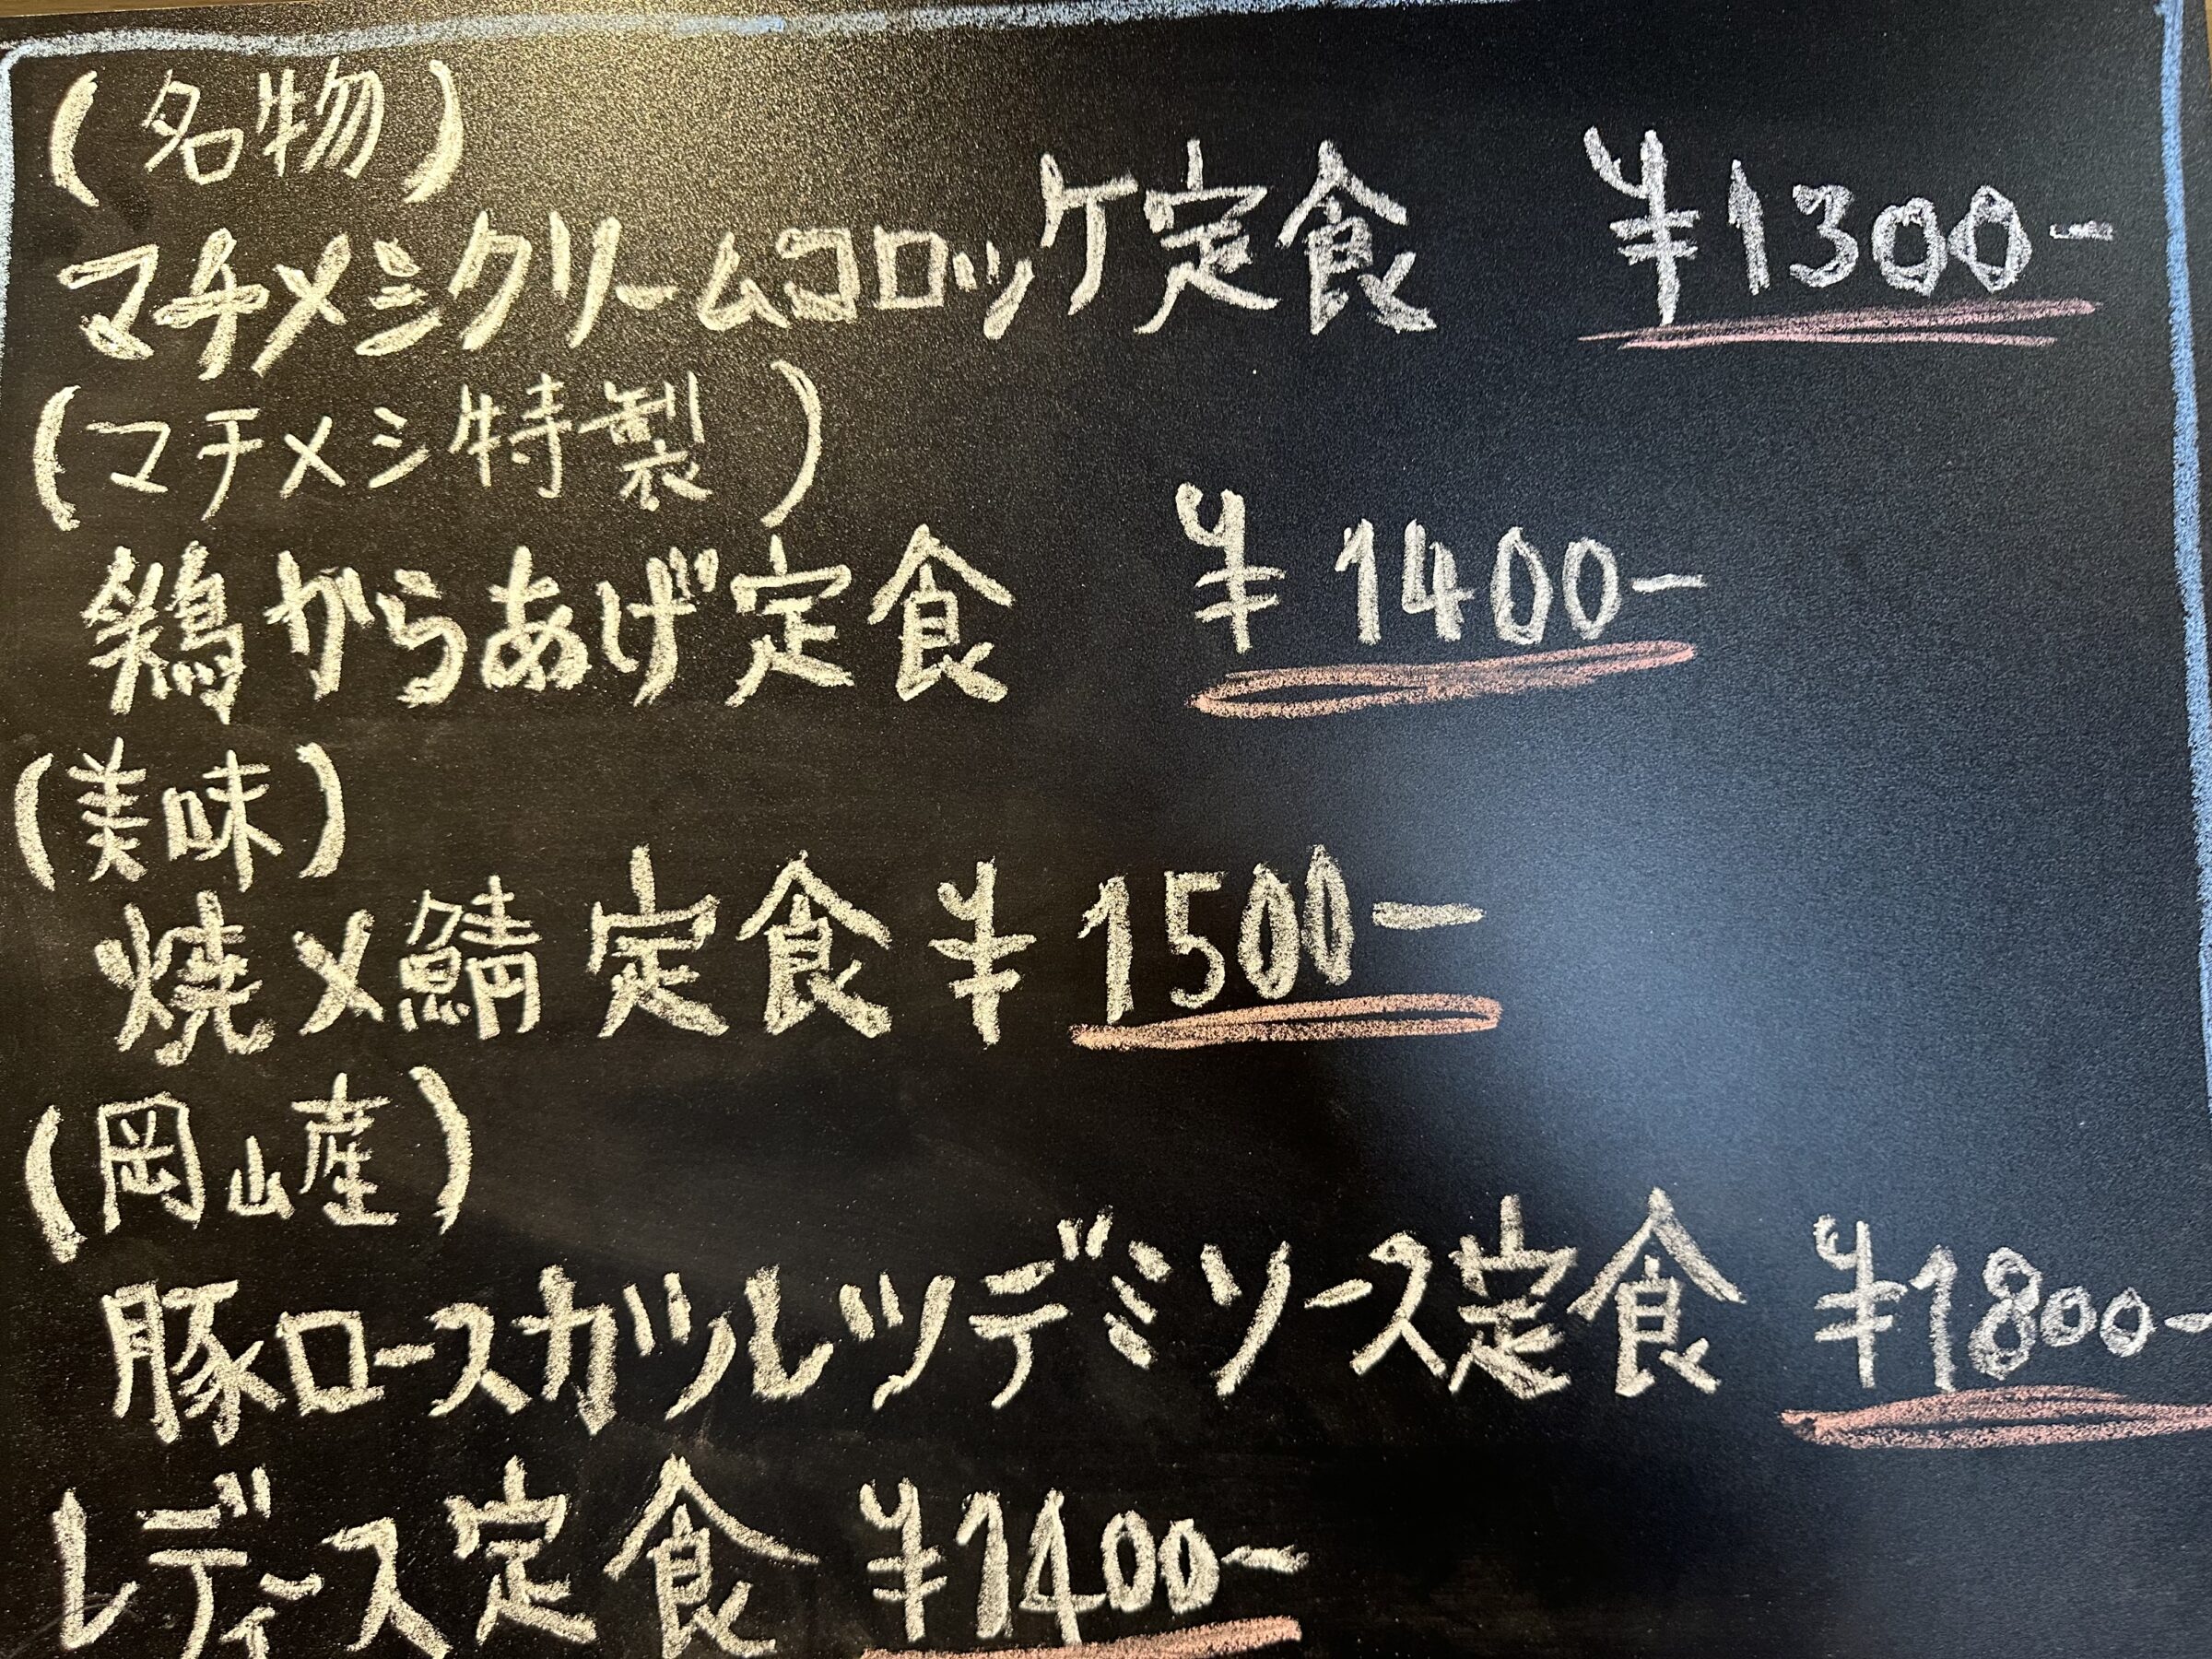 (名物)
マチメシクリームコロッケ定食 ¥1300-
(マチメシ特製)
鶏からあげ定食 ¥1400-
(美味)
焼〆鯖定食¥1500-
(岡山産)
豚ロースカツレツデミソース定食 ¥1800-
レディース定食 ¥1400-